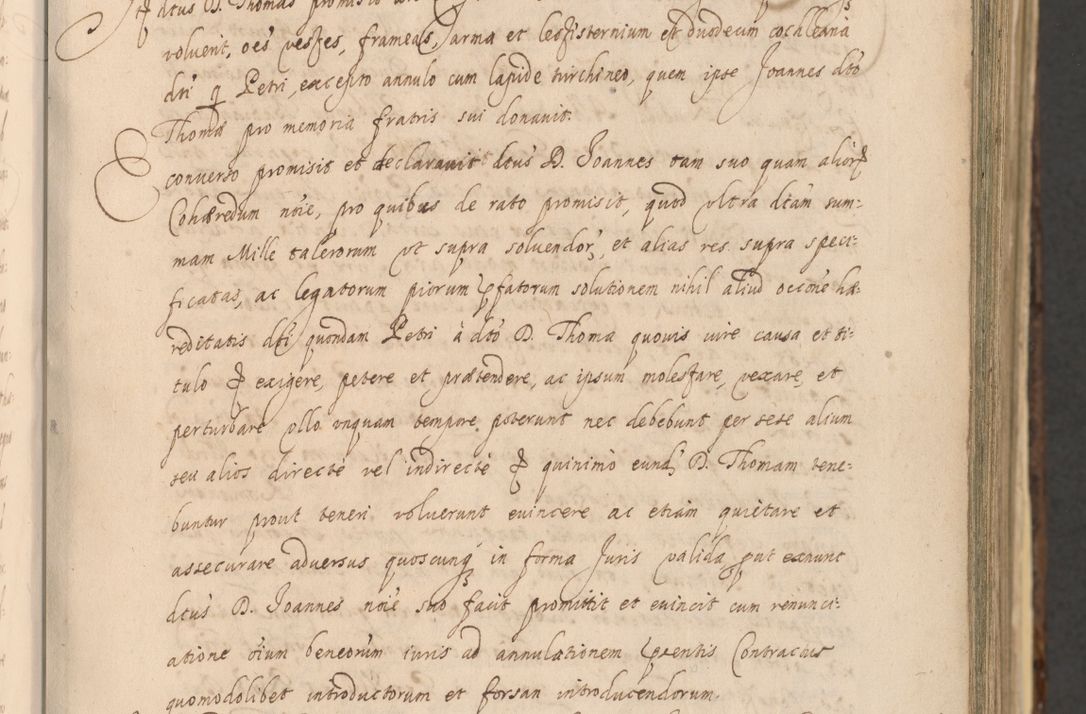 dtus D. Thomas promisit
voluerit, oẽs vestes, frameas, arma et lestisternium et duodecim cocalearia
dti q Petri, excepto annulo cum lapide turchineo, quem ipse Joannes dto
Thomæ pro memoria fratris sui donauit.
E converso promisit et declarauit dtus D. Joannes tam suo quam alior
Cohæredum noie, pro quibus de rato promisit, quod vltra dtam sum:
mam Mille talerorum vt supra soluendor, et alias res supra speci:
ficatas, ac legatorum piorum pfatorum solutionem nihil aliud occone hæ:
reditatis dti quondam Petri à dto D. Thoma quouis iure causa et ti:
tulo exigere, petere et prætendere, ac ipsum molestare, vexare, et
perturbare vllo vnquam tempore poterunt nec debebunt per sese alium
seu alios directè vel indirectè quinimò eund D. Thomam tene:
buntur prout teneri voluerunt euincere ac etiam quietare et
assecurare aduersus quoscunq in forma Juris valida, put exnunc
dtus D. Joannes noie suo facit promittit et euincit cum renunci:
atione oium beneorum iuris ad annulationem pñtis Contractus
quomodolibet introductorum et forsan introducendorum.